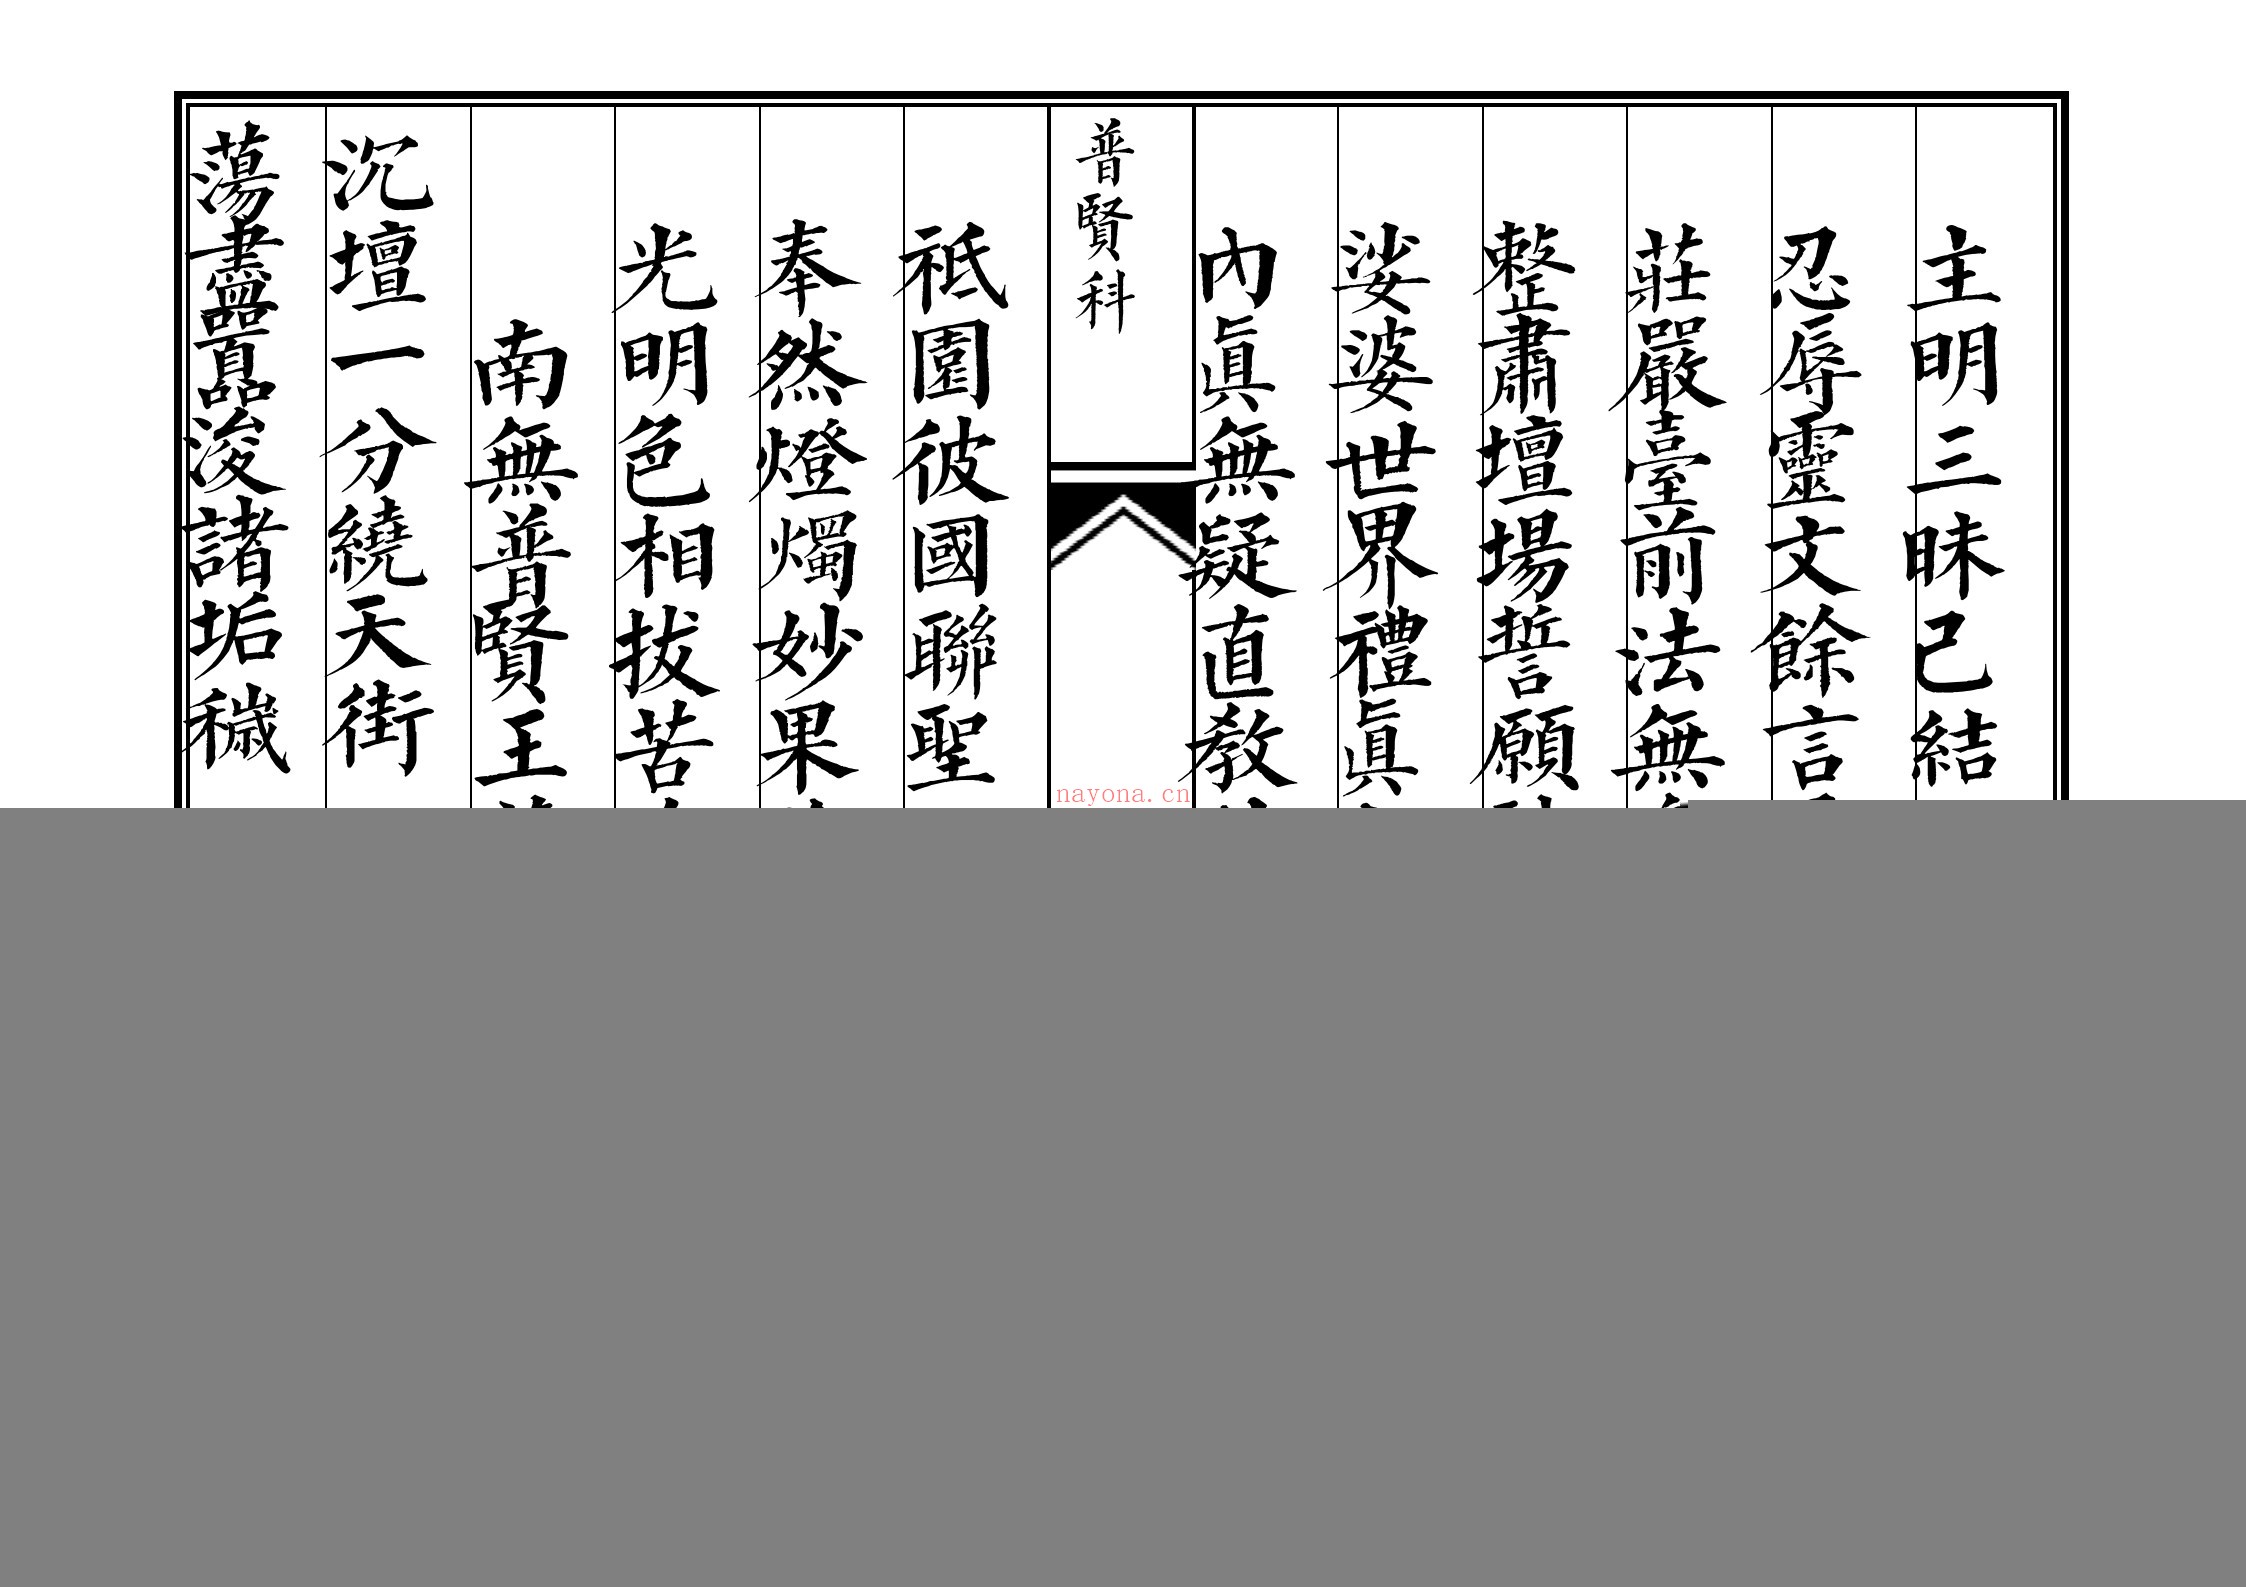 主明三昧己結
忍辱靈文餘言
莊嚴臺前法無
整肅壇場誓願
娑婆世界禮眞
內眞無疑直教
普賢科
祇園彼國聯聖
奉然燈燭妙果
光明色相拔苦
南無普賢王
沉壇一分繞天街
蕩盡囂浚諸垢穢
nayona.cn